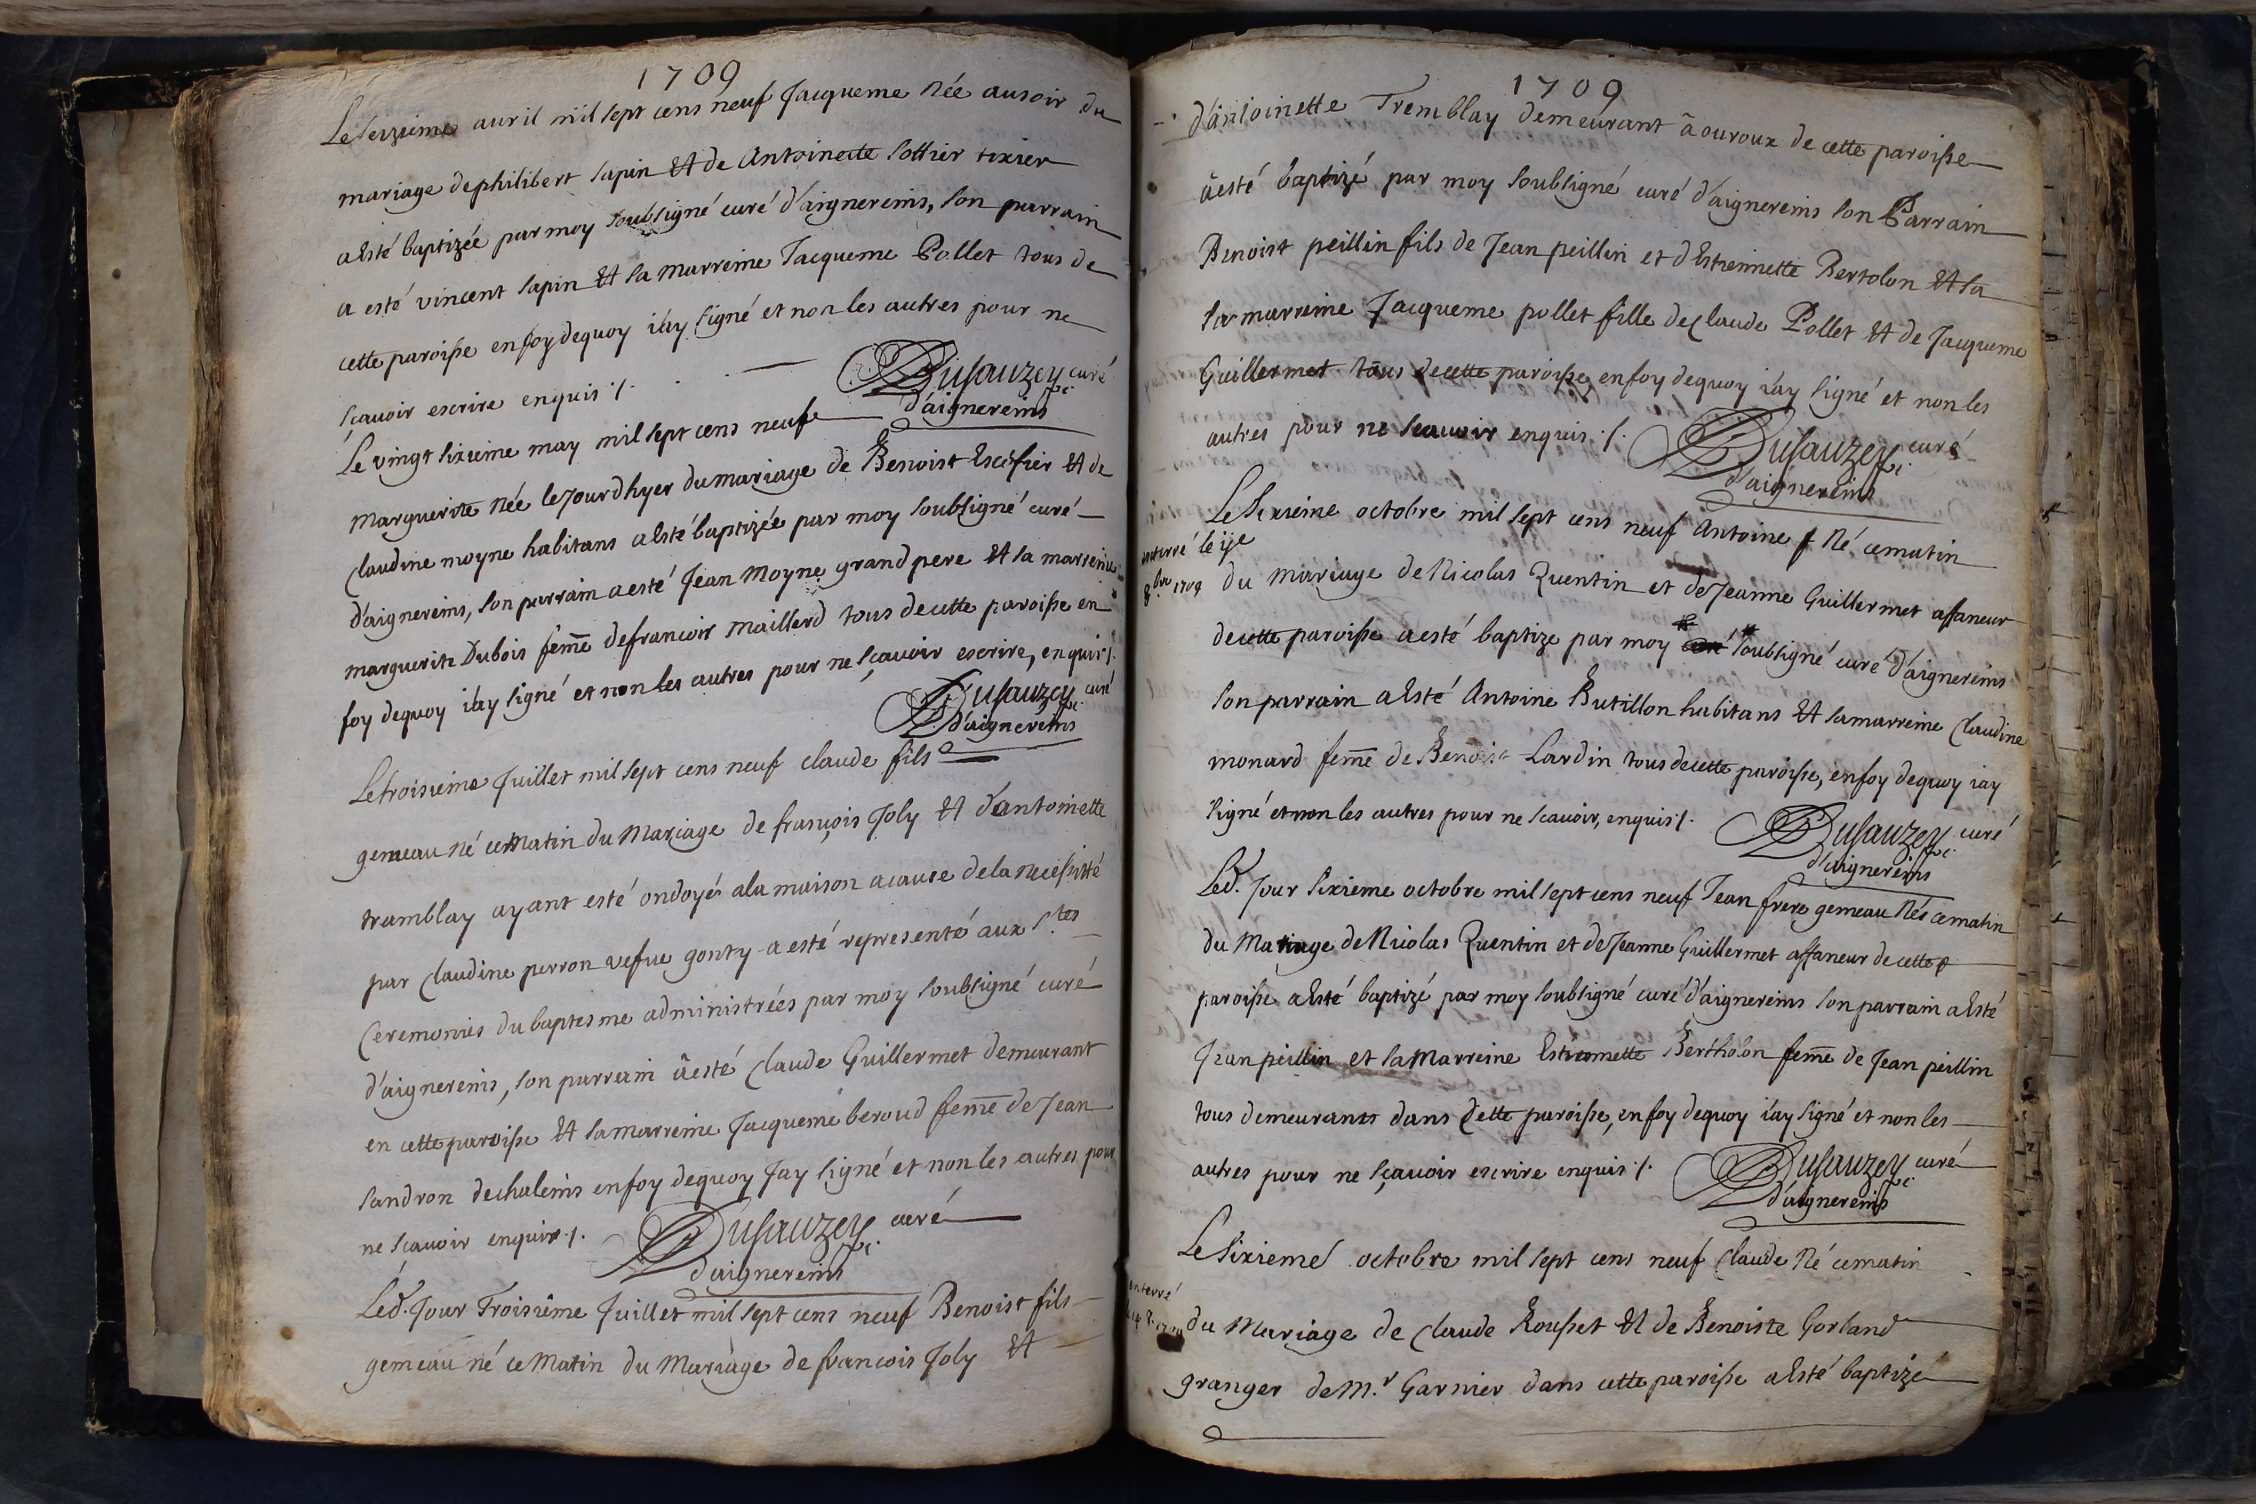 1709
Le seizieme auril mil sept cens neuf Jacqueme Née au soir du
mariage de philibert sapin Et de Antoinette sottier tixier
a Esté baptizée par moy soubsigné curé d'aignereins, son parrain
a esté vincent sapin Et sa marreine Jacqueme Pollet tous de
cette paroisse en foy dequoy i'ay signé et non les autres pour ne
sçauoir escrire enquis ./.
Dusauzey curé
d'aignereins
Le vingt sixieme may mil sept cens neuf
marguerite Née le Jour d'hyer du mariage de Benoist Escofier Et de
Claudine moyne habitans a Esté baptizée par moy soubsigné curé
d'aignereins, son parrain a esté Jean Moyne grand pere Et sa marreine
marguerite Dubois feme de francois maillerd tous de cette paroisse en
foy dequoy i'ay signé et non les autres pour ne sçauoir escrire, enquis ./.
Dusauzey curé
d'aignereins
Le troisieme Juillet mil sept cens neuf claude fils
gemeau né ce Matin du Mariage de françois Joly Et d'antoinette
tramblay ayant esté ondoyé a la maison a cause de la necessitté
par Claudine perron vefue gonty a esté representé aux S.tes
Ceremonies du baptesme administrées par moy soubsigné curé
d'aignereins, son parrain a esté Claude Guillermet demeurant
en cette paroisse Et sa marreine Jacqueme beroud feme de Jean
sandron de chaleins en foy dequoy Jay signé et non les autres pour
ne sçauoir enquis ./.
Dusauzey curé
d'aignereins
Led. Jour Troisieme Juillet mil sept cens neuf Benoist fils
gemeau né ce Matin du Mariage de francois Joly Et
1709
d'antoinette Tremblay demeurant à ouroux de cette paroisse
a esté baptizé par moy soubsigné curé d'aignereins son Parrain
Benoist peillin fils de Jean peillin et d'Estiennette Bertolon Et sa
sa marreine Jacqueme pollet fille de Claude Pollet Et de Jacqueme
Guillermet tous de cette paroisse, en foy dequoy i'ay signé et non les
autres pour ne scauoir enquis ./.
Dusauzey curé
d'aignereins
Le Sixieme octobre mil sept cens neuf Antoine Né ce matin
enterré le ije
8.bre 1709
du Mariage de Nicolas Quentin et de Jeanne Guillermet affaneur
de cette paroisse a esté baptize par moy soubsigné curé d'aignereins
son parrain a Esté Antoine Butillon habitans Et sa marreine Claudine
monard feme de Benoist Lardin tous de cette paroisse, en foy dequoy iay
signé et non les autres pour ne scauoir, enquis ./.
Dusauzey curé
d'aignereins
Led. Jour Sixieme octobre mil sept cens neuf Jean frere gemeau Nés ce matin
du Mariage de Nicolas Quentin et de Jeanne Guillermet affaneur de cette
paroisse a Esté baptizé par moy soubsigné curé d'aignereins son parrain a Esté
Jean peillin et sa Marreine Estiennette Bertholon feme de Jean peillin
tous demeurants dans Cette paroisse, en foy dequoy i'ay signé et non les
autres pour ne sçauoir escrire enquis ./.
Dusauzey curé
d'aignereins
Le Sixieme octobre mil sept cens neuf Claude Né ce matin
enterré
du Mariage de Claude Rousset Et de Benoiste Gorland
granger de M.r Garnier dans cette paroisse a Esté baptizé